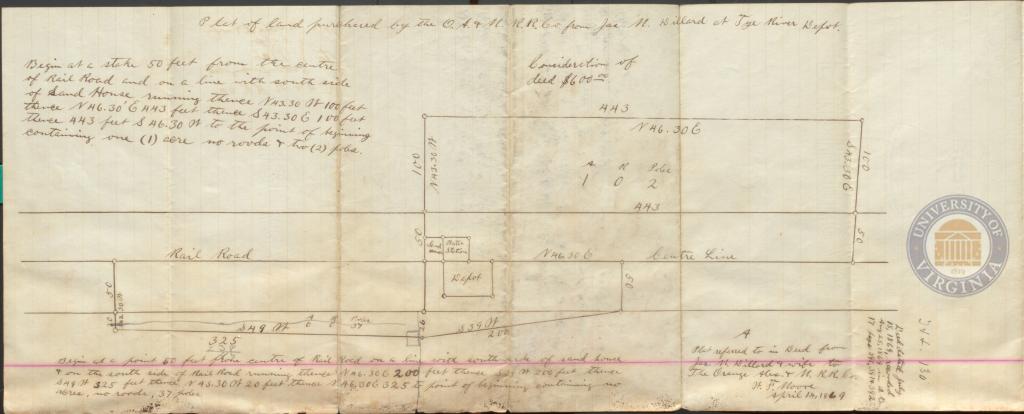 Plat of land purchased by the O. A. & M. R. R. Co from Jas. N. Dillard at Tye River Depot.
Begin at a stake 50 feet from the centre
of Rail Road and on a line with south side
of Sand House running thence N 43.30 W 100 feet
thence N 46.30' E 443 feet thence S 43.30 E 100 feet
thence 443 feet S 46.30 W to the point of beginning
containing one (1) acre no roods & two (2) poles.
Consideration of
deed $600.00
443
N 46.30 E
100
N 43.30 W
A R Poles
1 0 2
443
100
S 43.30 E
50
50
Sand
Water
Station
Rail Road
N 46.30 E
Centre Line
Depot
50
50
20
S 49 W
325
Poles
37
26
S 39 W
200
Begin at a point 50 feet from centre of Rail Road on a line with south side of sand house
& on the south side of Rail Road running thence N 46.30 E 200 feet thence S 39 W 200 feet thence
S 49 W 325 feet thence N 43.30 W 20 feet thence N 46.30 E 325 to point of beginning containing no
acres, no roods, 37 poles
A
Plat referred to in Deed from
Jas. N. Dillard & wife to
The Orange Alex & M. R. R. Co.
W. F. Moore
April 14, 1869
Deed dated July
15, 1869
130
UNIVERSITY OF
VIRGINIA
1819